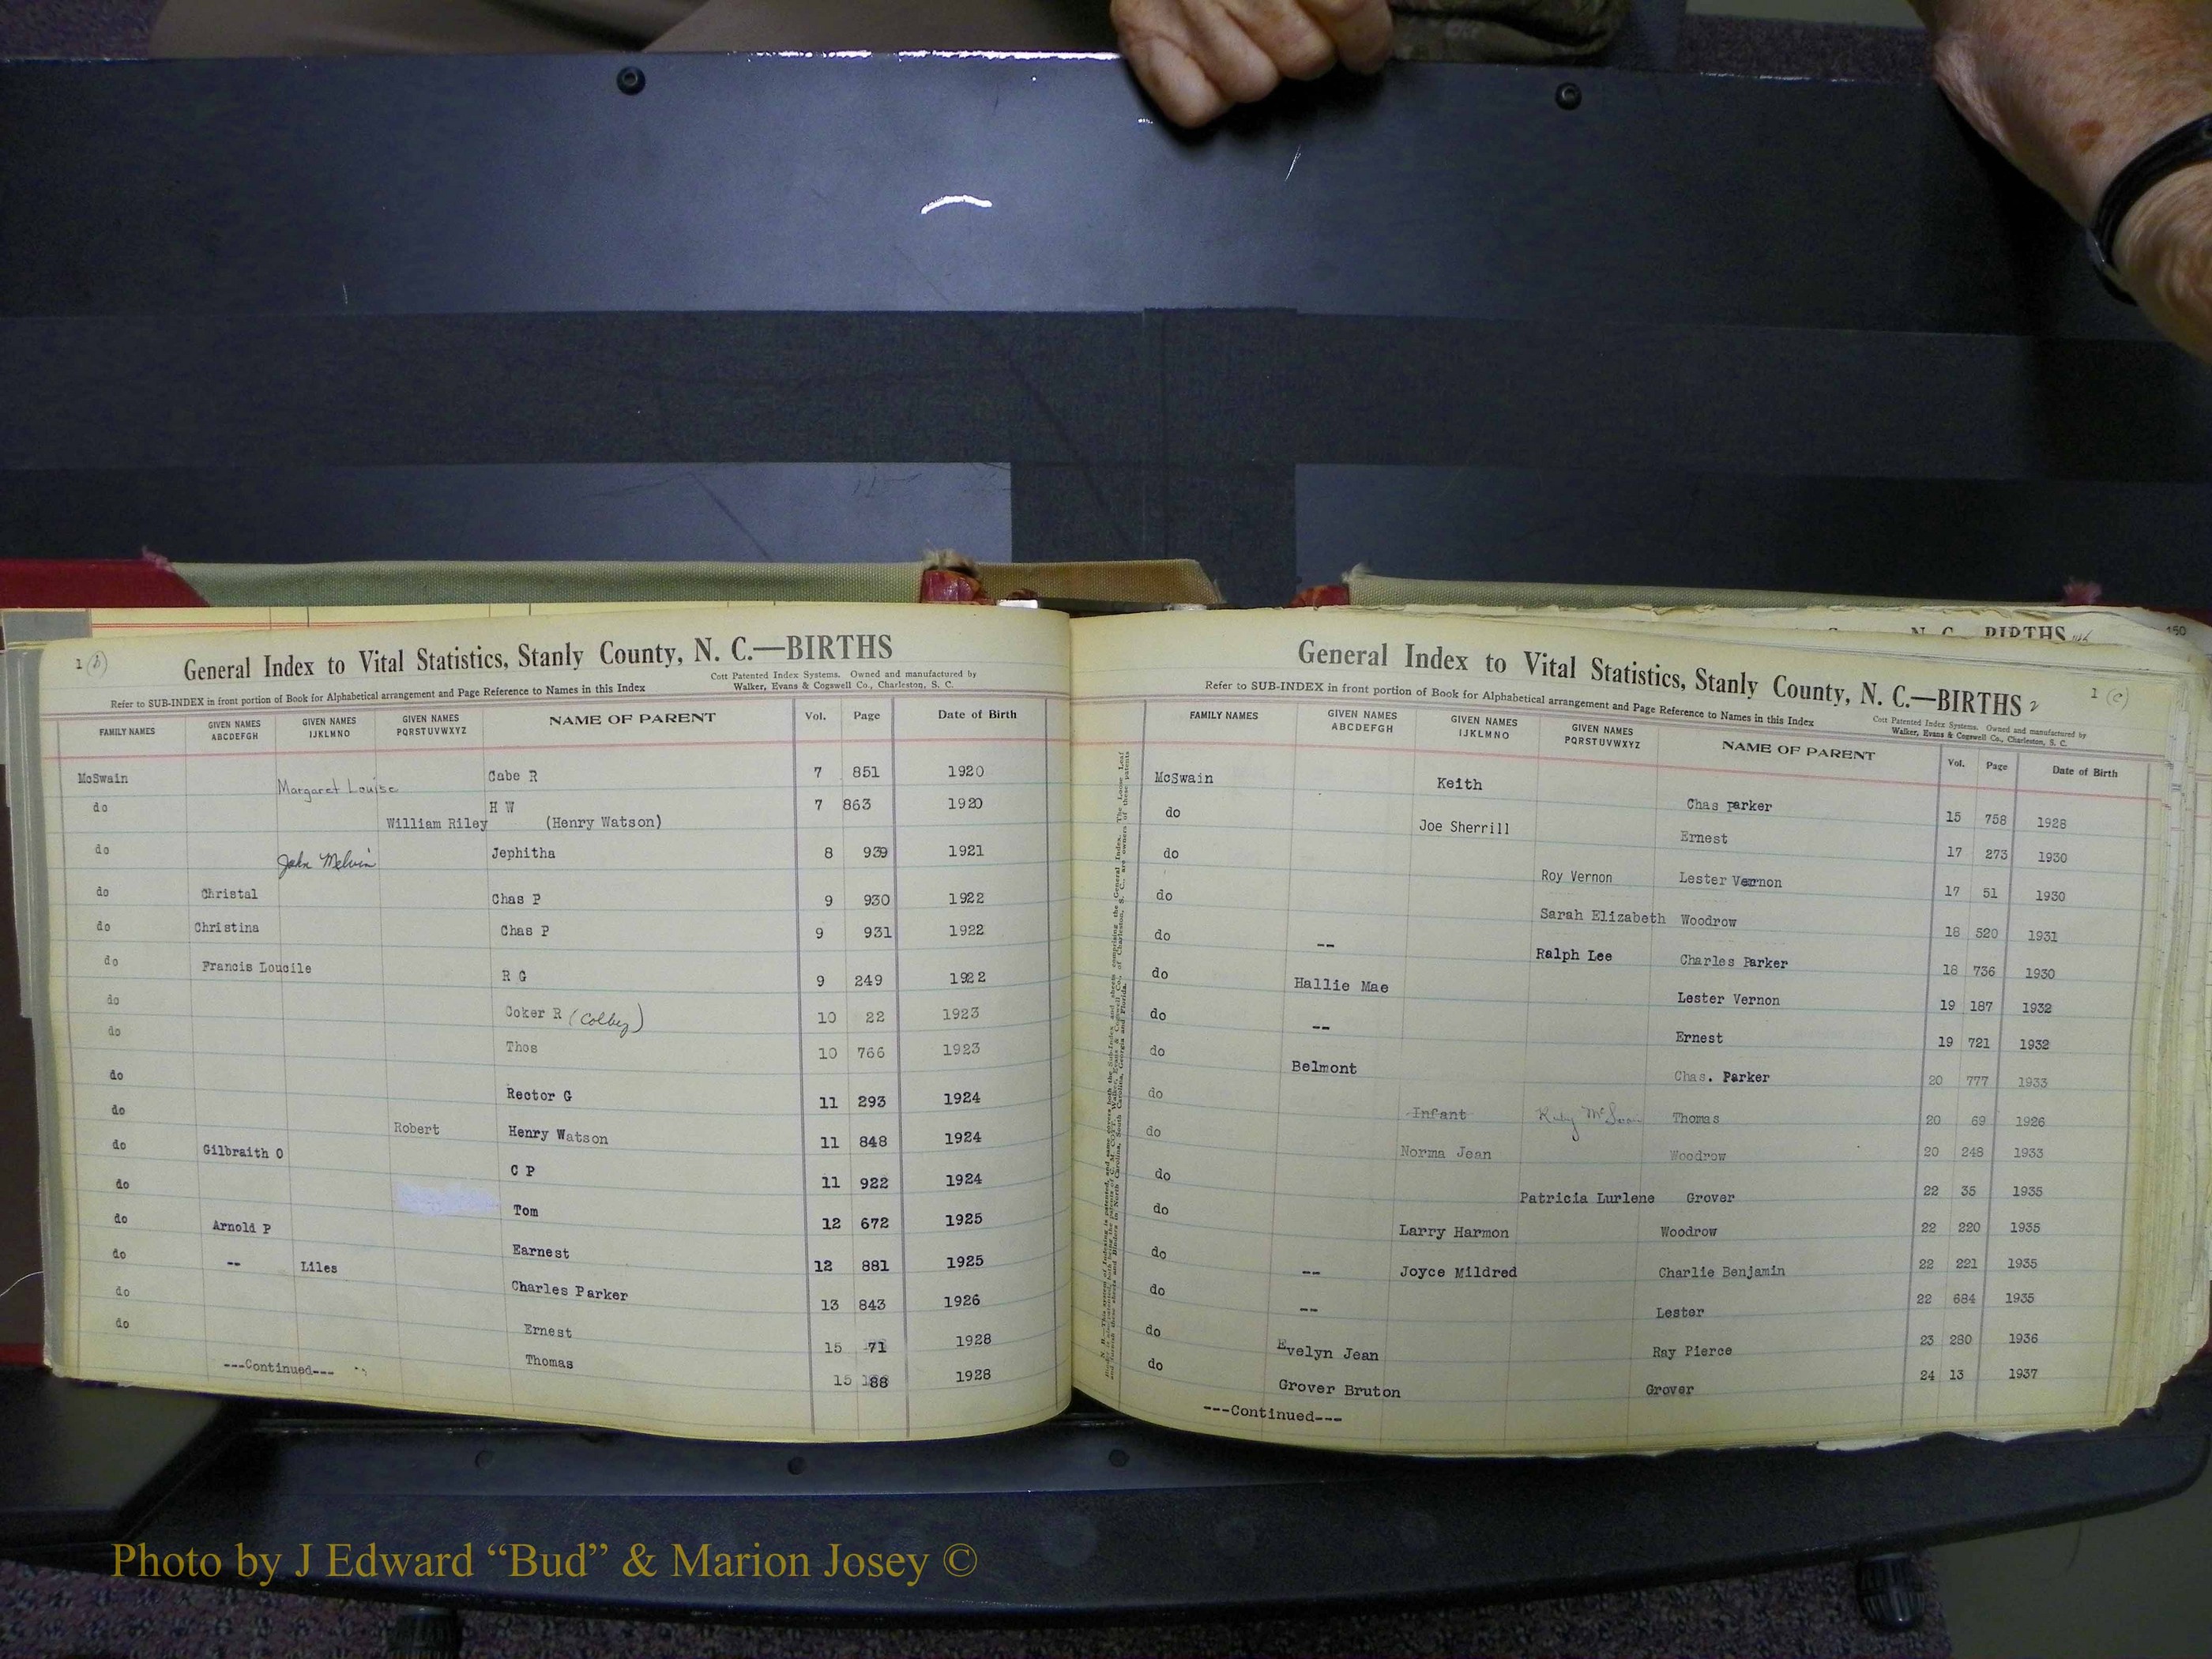 1 (b)
General Index to Vital Statistics, Stanly County, N. C.—BIRTHS
Cott Patented Index Systems. Owned and manufactured by
Refer to SUB-INDEX in front portion of Book for Alphabetical arrangement and Page Reference to Names in this Index
Walker, Evans & Cogswell Co., Charleston, S. C.
FAMILY NAMES GIVEN NAMES ABCDEFGH GIVEN NAMES IJKLMNO GIVEN NAMES PQRSTUVWXYZ NAME OF PARENT Vol. Page Date of Birth
McSwain Margaret Louise Cabe R 7 851 1920
do H W 7 863 1920
William Riley (Henry Watson)
do John Melvin Jephitha 8 939 1921
do Christal Chas P 9 930 1922
do Christina Chas P 9 931 1922
do Francis Loucile R G 9 249 1922
do Coker R (Colby) 10 22 1923
do Thos 10 766 1923
do Rector G 11 293 1924
do Robert Henry Watson 11 848 1924
do Gilbraith O C P 11 922 1924
do Tom 12 672 1925
do Arnold P Earnest 12 881 1925
do -- Liles Charles Parker 13 843 1926
do Ernest 15 71 1928
do Thomas 15 188 1928
---Continued---
1 (c)
General Index to Vital Statistics, Stanly County, N. C.—BIRTHS 2
Refer to SUB-INDEX in front portion of Book for Alphabetical arrangement and Page Reference to Names in this Index
Cott Patented Index Systems. Owned and manufactured by
Walker, Evans & Cogswell Co., Charleston, S. C.
FAMILY NAMES GIVEN NAMES ABCDEFGH GIVEN NAMES IJKLMNO GIVEN NAMES PQRSTUVWXYZ NAME OF PARENT Vol. Page Date of Birth
McSwain Keith Chas Parker 15 758 1928
do Joe Sherrill Ernest 17 273 1930
do Roy Vernon Lester Vernon 17 51 1930
do Sarah Elizabeth Woodrow 18 520 1931
do -- Ralph Lee Charles Parker 18 736 1930
do Hallie Mae Lester Vernon 19 187 1932
do -- Ernest 19 721 1932
do Belmont Chas. Parker 20 777 1933
do Infant Ruby McSwain Thomas 20 69 1926
do Norma Jean Woodrow 20 248 1933
do Patricia Lurlene Grover 22 35 1935
do Larry Harmon Woodrow 22 220 1935
do -- Joyce Mildred Charlie Benjamin 22 221 1935
do -- Lester 22 684 1935
do Evelyn Jean Ray Pierce 23 280 1936
do Grover Bruton Grover 24 13 1937
---Continued---
N. C.—BIRTHS
150
Photo by J Edward “Bud” & Marion Josey ©